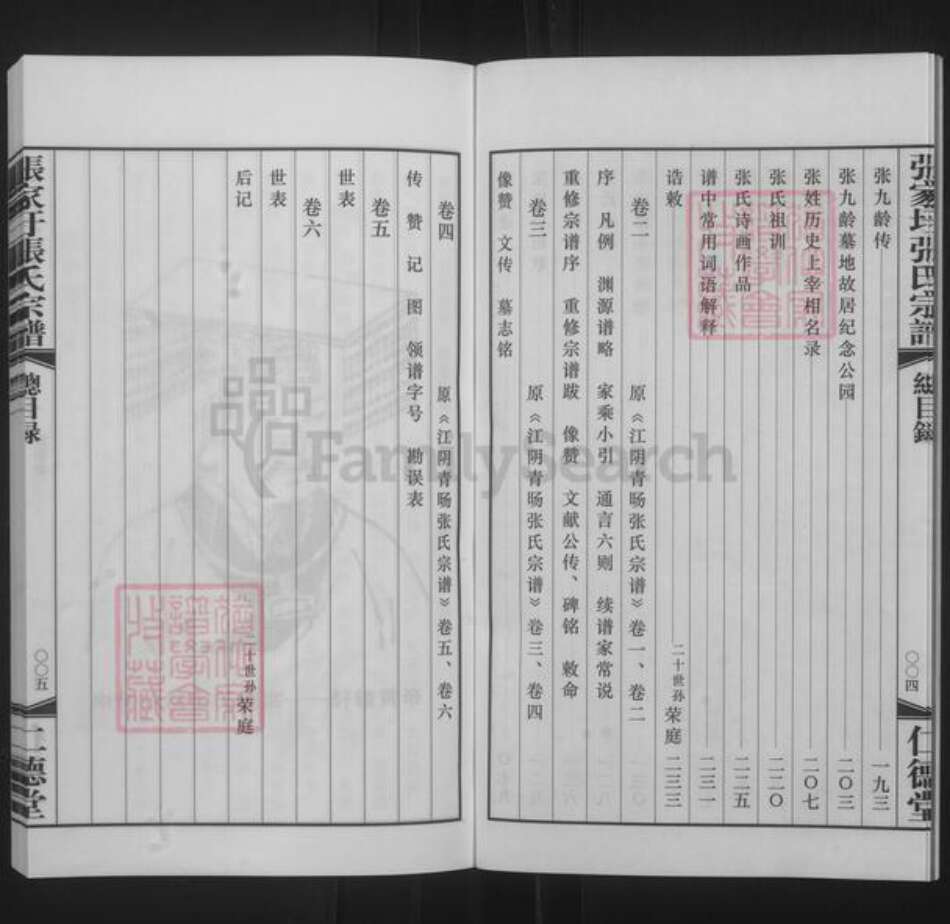 张家圩張氏宗譜 總目錄 〇〇四 仁德堂
张九龄传 一九三
张九龄墓地故居纪念公园 二〇三
张姓历史上宰相名录 二〇七
张氏祖训 二二〇
张氏诗画作品 二二五
谱中常用词语解释 二三一
诰敕 二十世孙 荣庭 二三三
卷二 原《江阴青旸张氏宗谱》卷一、卷二
序 凡例 渊源谱略 家乘小引 通言六则 续谱家常说
重修宗谱序 重修宗谱跋 像赞 文献公传、碑铭 敕命
卷三 原《江阴青旸张氏宗谱》卷三、卷四
像赞 文传 墓志铭
卷四 原《江阴青旸张氏宗谱》卷五、卷六
传 赞 记 图 领谱字号 勘误表
卷五
世表
卷六
世表
后记 二十世孙 荣庭
張家圩張氏宗譜 總目録 〇〇五 仁德堂
FamilySearch